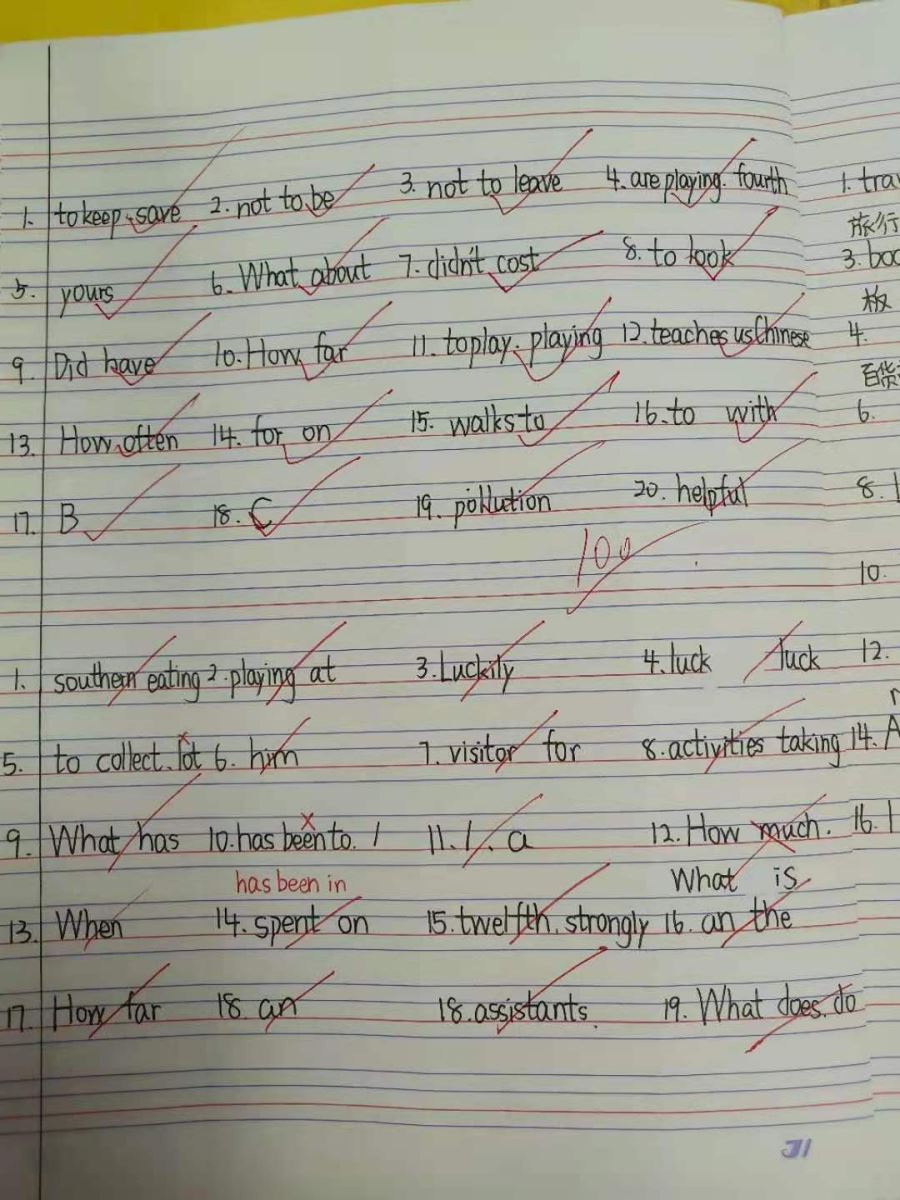 1. to keep. save 2. not to be 3. not to leave 4. are playing. fourth 1. tra
旅行
5. yours 6. What about 7. didn't cost 8. to look 3. boo
板
9. Did have 10. How far 11. to play. playing 12. teaches us Chinese 4.
百货
13. How often 14. for on 15. walks to 16. to with 6.
17. B 18. C 19. pollution 20. helpful 8.
100
10.
1. southern eating 2. playing at 3. Luckily 4. luck luck 12.
5. to collect. lot 6. him 7. visitor for 8. activities taking 14. A
9. What has 10. has been to. / 11. /. a 12. How much. 16.
has been in What is
13. When 14. spent on 15. twelfth. strongly 16. an the
17. How far 18 an 18. assistants. 19. What does. do
31